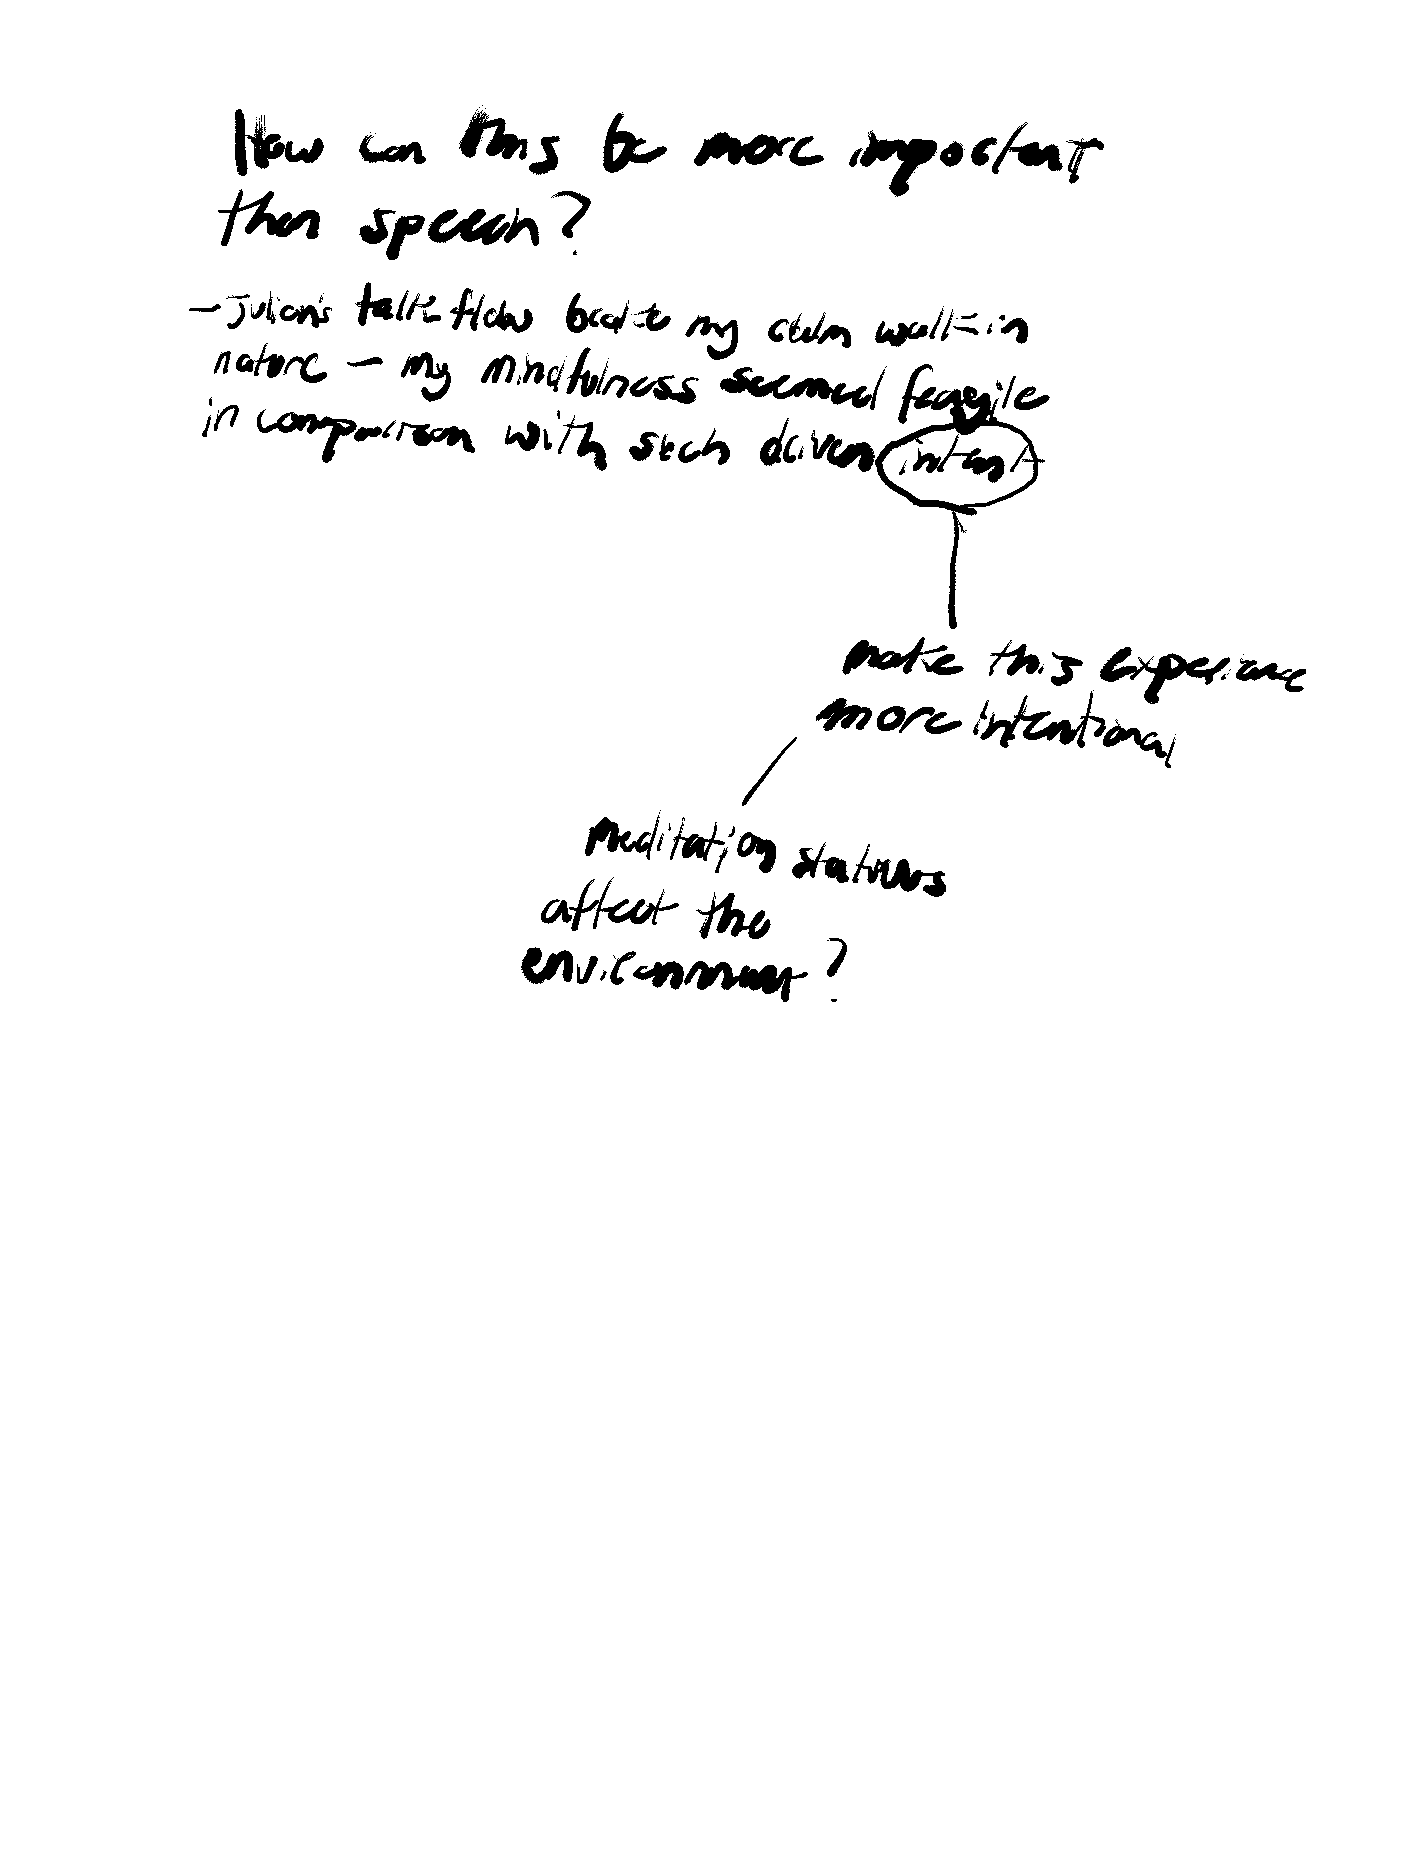 How can this be more important
then speech?
- Julian's talk flew back to my calm walk in
nature - my mindfulness seemed fragile
in comparison with such driven intent
make this experience
more intentional
meditation statues
affect the
environment?